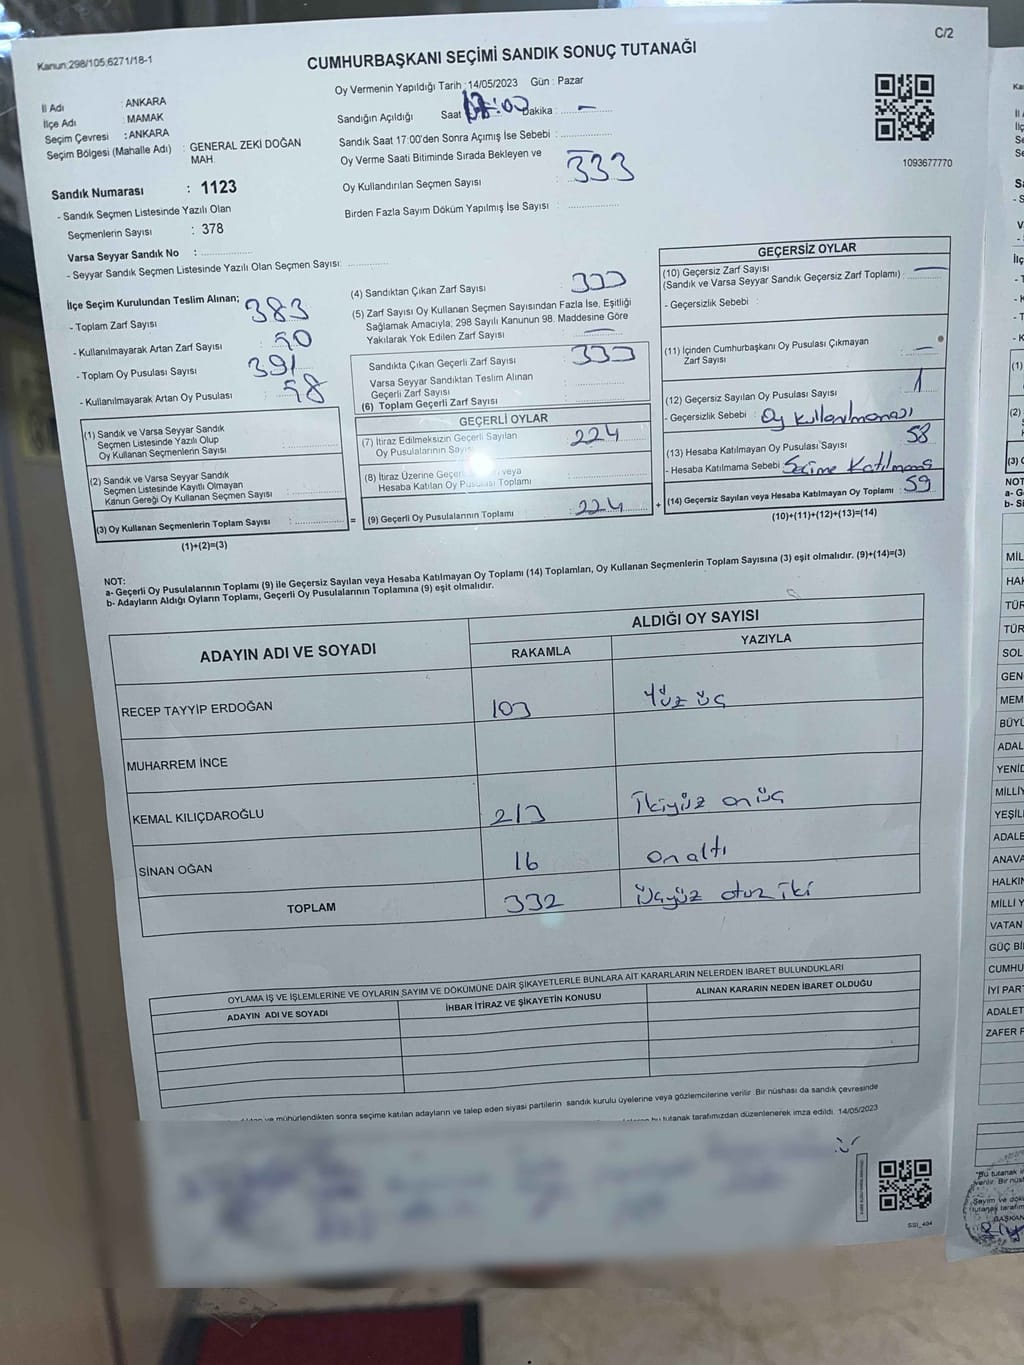 Kanun:298/105,6271/18-1
C/2
CUMHURBAŞKANI SEÇİMİ SANDIK SONUÇ TUTANAĞI
İl Adı : ANKARA
İlçe Adı : MAMAK
Seçim Çevresi : ANKARA
Seçim Bölgesi (Mahalle Adı) : GENERAL ZEKİ DOĞAN MAH.
Sandık Numarası : 1123
- Sandık Seçmen Listesinde Yazılı Olan
Seçmenlerin Sayısı : 378
Varsa Seyyar Sandık No :
- Seyyar Sandık Seçmen Listesinde Yazılı Olan Seçmen Sayısı:
Oy Vermenin Yapıldığı Tarih : 14/05/2023 Gün : Pazar
Sandığın Açıldığı Saat :00 Dakika : -
Sandık Saat 17:00'den Sonra Açımış İse Sebebi :
Oy Verme Saati Bitiminde Sırada Bekleyen ve
Oy Kullandırılan Seçmen Sayısı : 333
Birden Fazla Sayım Döküm Yapılmış İse Sayısı :
1093677770
İlçe Seçim Kurulundan Teslim Alınan;
- Toplam Zarf Sayısı : 383
- Kullanılmayarak Artan Zarf Sayısı : 50
- Toplam Oy Pusulası Sayısı : 391
- Kullanılmayarak Artan Oy Pusulası : 58
(1) Sandık ve Varsa Seyyar Sandık
Seçmen Listesinde Yazılı Olup
Oy Kullanan Seçmenlerin Sayısı :
(2) Sandık ve Varsa Seyyar Sandık
Seçmen Listesinde Kayıtlı Olmayan
Kanun Gereği Oy Kullanan Seçmen Sayısı :
(3) Oy Kullanan Seçmenlerin Toplam Sayısı : =
(1)+(2)=(3)
(4) Sandıktan Çıkan Zarf Sayısı : 333
(5) Zarf Sayısı Oy Kullanan Seçmen Sayısından Fazla İse, Eşitliği
Sağlamak Amacıyla; 298 Sayılı Kanunun 98. Maddesine Göre
Yakılarak Yok Edilen Zarf Sayısı : -
Sandıkta Çıkan Geçerli Zarf Sayısı : 333
Varsa Seyyar Sandıktan Teslim Alınan
Geçerli Zarf Sayısı :
(6) Toplam Geçerli Zarf Sayısı :
GEÇERLİ OYLAR
(7) İtiraz Edilmeksizin Geçerli Sayılan
Oy Pusulalarının Sayısı : 224
(8) İtiraz Üzerine Geçerli veya
Hesaba Katılan Oy Pusulası Toplamı :
(9) Geçerli Oy Pusulalarının Toplamı : 224 +
GEÇERSİZ OYLAR
(10) Geçersiz Zarf Sayısı
(Sandık ve Varsa Seyyar Sandık Geçersiz Zarf Toplamı) : -
- Geçersizlik Sebebi :
(11) İçinden Cumhurbaşkanı Oy Pusulası Çıkmayan
Zarf Sayısı : -
(12) Geçersiz Sayılan Oy Pusulası Sayısı : 1
- Geçersizlik Sebebi : Oy kullanılmaması
(13) Hesaba Katılmayan Oy Pusulası Sayısı : 58
- Hesaba Katılmama Sebebi : Seçime Katılmama
(14) Geçersiz Sayılan veya Hesaba Katılmayan Oy Toplamı : 59
(10)+(11)+(12)+(13)=(14)
NOT:
a- Geçerli Oy Pusulalarının Toplamı (9) ile Geçersiz Sayılan veya Hesaba Katılmayan Oy Toplamı (14) Toplamları, Oy Kullanan Seçmenlerin Toplam Sayısına (3) eşit olmalıdır. (9)+(14)=(3)
b- Adayların Aldığı Oyların Toplamı, Geçerli Oy Pusulalarının Toplamına (9) eşit olmalıdır.
ADAYIN ADI VE SOYADI
ALDIĞI OY SAYISI
RAKAMLA YAZIYLA
RECEP TAYYİP ERDOĞAN 103 Yüz üç
MUHARREM İNCE
KEMAL KILIÇDAROĞLU 213 İkiyüz onüç
SİNAN OĞAN 16 on altı
TOPLAM 332 Üçyüz otuz iki
OYLAMA İŞ VE İŞLEMLERİNE VE OYLARIN SAYIM VE DÖKÜMÜNE DAİR ŞİKAYETLERLE BUNLARA AİT KARARLARIN NELERDEN İBARET BULUNDUKLARI
ADAYIN ADI VE SOYADI İHBAR İTİRAZ VE ŞİKAYETİN KONUSU ALINAN KARARIN NEDEN İBARET OLDUĞU
ve mühürlendikten sonra seçime katılan adayların ve talep eden siyasi partilerin sandık kurulu üyelerine veya gözlemcilerine verilir. Bir nüshası da sandık çevresinde
bu tutanak tarafımızdan düzenlenerek imza edildi. 14/05/2023
SSI_404